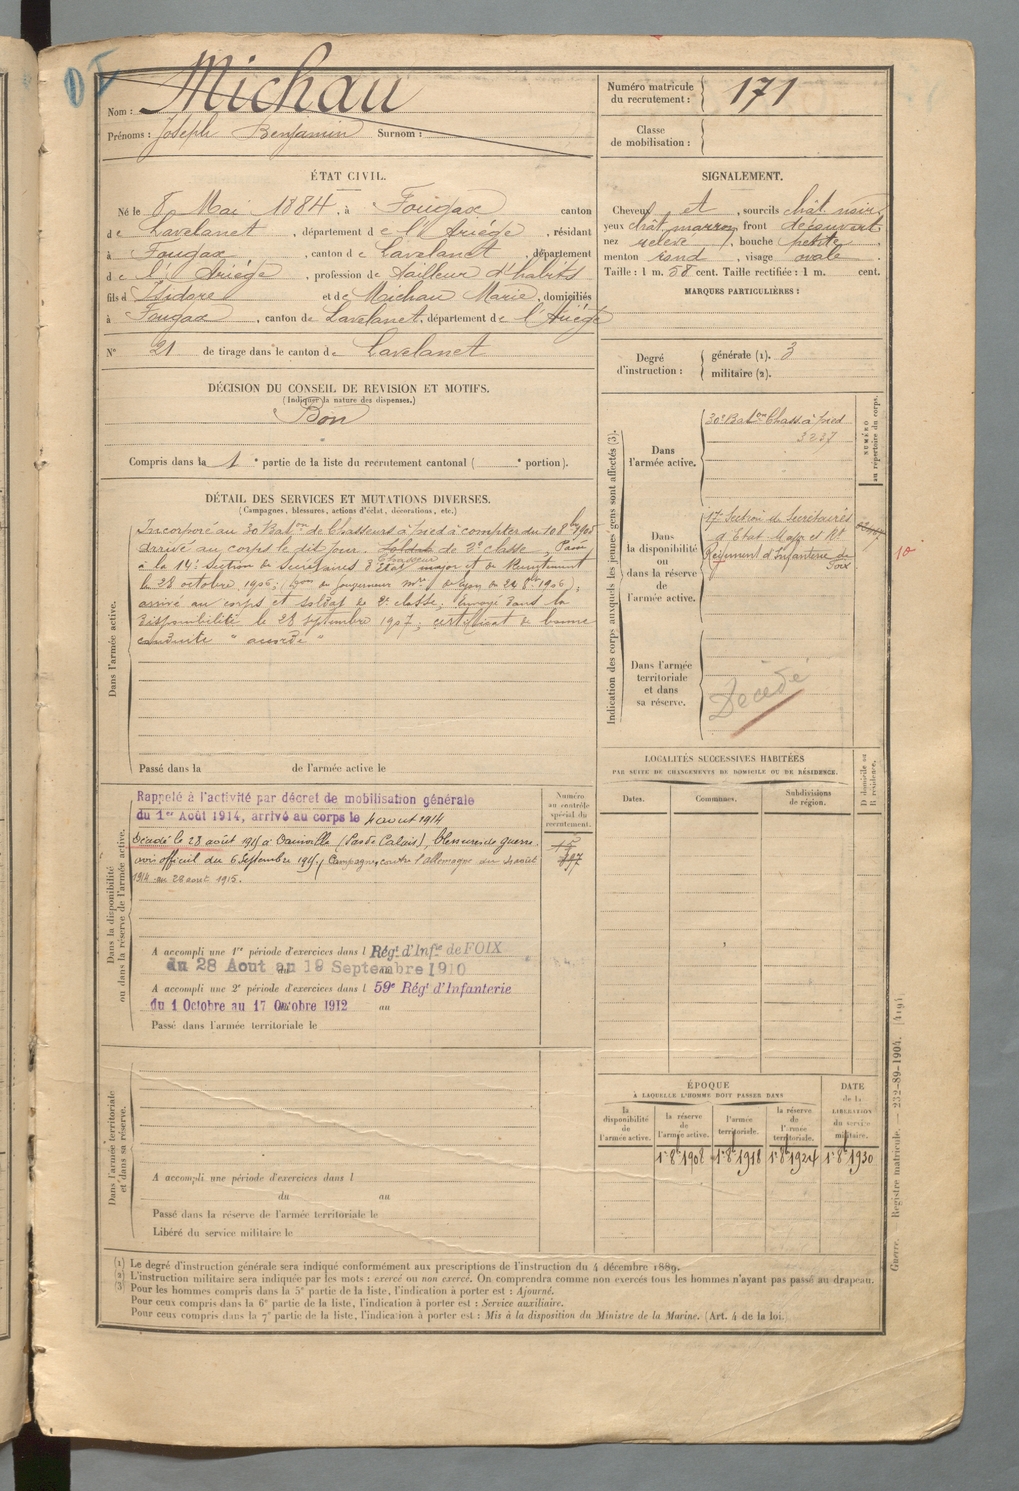 Nom : Michau
Prénoms : Joseph Benjamin Surnom :
Numéro matricule du recrutement : 171
Classe de mobilisation :
ÉTAT CIVIL.
Né le 8 Mai 1884, à Fougax canton
de Lavelanet, département de l'Ariége, résidant
à Fougax, canton de Lavelanet, département
de l'Ariége, profession de tailleur d'habits
fils d Isidore et de Michau Marie, domiciliés
à Fougax, canton de Lavelanet, département de l'Ariége
N° 21 de tirage dans le canton de Lavelanet
SIGNALEMENT.
Cheveux et , sourcils chât noir
yeux chât marron, front découvert
nez relevé, bouche petite,
menton rond, visage ovale
Taille : 1 m. 58 cent. Taille rectifiée : 1 m. cent.
MARQUES PARTICULIÈRES :
Degré d'instruction : générale (1). 3
militaire (2).
DÉCISION DU CONSEIL DE REVISION ET MOTIFS.
(Indiquer la nature des dispenses.)
Bon
Compris dans la 1e partie de la liste du recrutement cantonal ( e portion).
DÉTAIL DES SERVICES ET MUTATIONS DIVERSES.
(Campagnes, blessures, actions d'éclat, décorations, etc.)
Dans l'armée active.
Incorporé au 30 Baton de Chasseurs à pied à compter du 10 8bre 1905
arrivé au corps le dit jour. Soldat de 2e classe, Passé
à la 14e Section de Secrétaires d'Etat major et de Recrutement
le 28 octobre 1906;
arrivé au corps et soldat de 2e classe; Envoyé dans la
disponibilité le 28 septembre 1907; certificat de bonne
conduite " accordé "
Passé dans la de l'armée active le
Dans la disponibilité ou dans la réserve de l'armée active.
Rappelé à l'activité par décret de mobilisation générale
du 1er Août 1914, arrivé au corps le 4 aout 1914
Décédé le 28 août 1915 à (Pas de Calais), blessures de guerre.
avis officiel du 6 Septembre 1915. Campagne contre l'allemagne du 4 aout
1914 au 28 aout 1915.
Numéro au contrôle spécial du recrutement.
A accompli une 1re période d'exercices dans l Régt d'Infie de FOIX
du 28 Aout au 19 Septembre 1910
A accompli une 2e période d'exercices dans l 59e Régt d'Infanterie
du 1 Octobre au 17 Octobre 1912 au
Passé dans l'armée territoriale le
Dans l'armée territoriale et dans sa réserve.
A accompli une période d'exercices dans l
du au
Passé dans la réserve de l'armée territoriale le
Libéré du service militaire le
Indication des corps auxquels les jeunes gens sont affectés (3).
NUMÉRO au répertoire du corps.
Dans l'armée active.
30e Baton Chass. à pied
3237
Dans la disponibilité ou dans la réserve de l'armée active.
17e Section de Secrétaires
d'Etat-Major et Rt
Régiment d'Infanterie de
Foix
10
Dans l'armée territoriale et dans sa réserve.
Décédé
LOCALITÉS SUCCESSIVES HABITÉES
PAR SUITE DE CHANGEMENTS DE DOMICILE OU DE RÉSIDENCE.
D domicile ou R résidence.
Dates. Communes. Subdivisions de région.
ÉPOQUE
À LAQUELLE L'HOMME DOIT PASSER DANS
DATE de la LIBÉRATION du service militaire.
la disponibilité de l'armée active. la réserve de l'armée active. l'armée territoriale. la réserve de l'armée territoriale.
1er 8bre 1908 1er 8bre 1918 1er 8bre 1924 1er 8bre 1930
(1) Le degré d'instruction générale sera indiqué conformément aux prescriptions de l'instruction du 4 décembre 1889.
(2) L'instruction militaire sera indiquée par les mots : exercé ou non exercé. On comprendra comme non exercés tous les hommes n'ayant pas passé au drapeau.
(3) Pour les hommes compris dans la 5e partie de la liste, l'indication à porter est : Ajourné.
Pour ceux compris dans la 6e partie de la liste, l'indication à porter est : Service auxiliaire.
Pour ceux compris dans la 7e partie de la liste, l'indication à porter est : Mis à la disposition du Ministre de la Marine. (Art. 4 de la loi.
Guerre. Registre matricule. — 232-89-1904. [419].